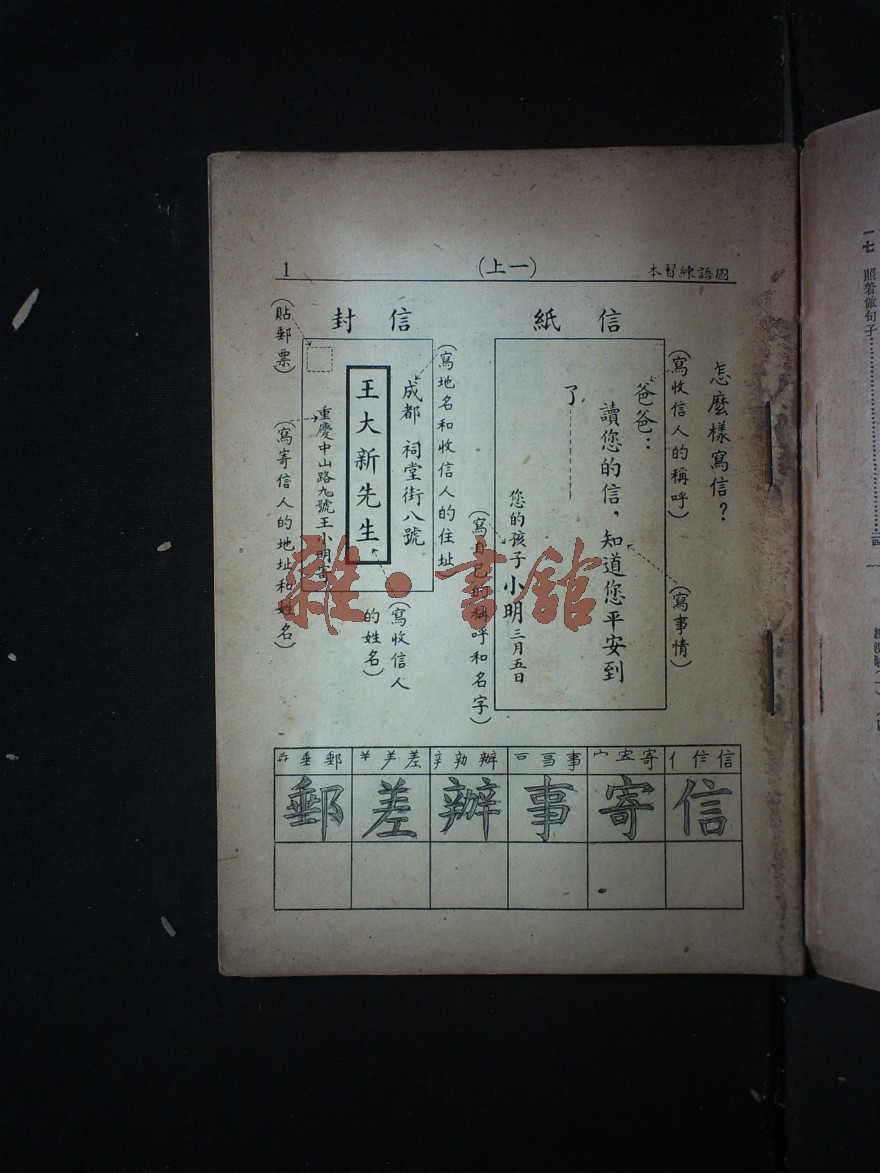 國語練習本
(一上)
1
怎麼樣寫信?
信紙
(寫收信人的稱呼)
(寫事情)
爸爸:
讀您的信,知道您平安到
了
您的孩子小明三月五日
(寫自己的稱呼和名字)
信封
(寫地名和收信人的住址
成都 祠堂街八號
王大新先生
(寫收信人
的姓名)
重慶中山路九號王小明寄
(貼郵票)
(寫寄信人的地址和姓名)
亻信信
宀宀寄
事
辦
差
垂郵
信寄事辦差郵
雜·書館
一七 照着做句子